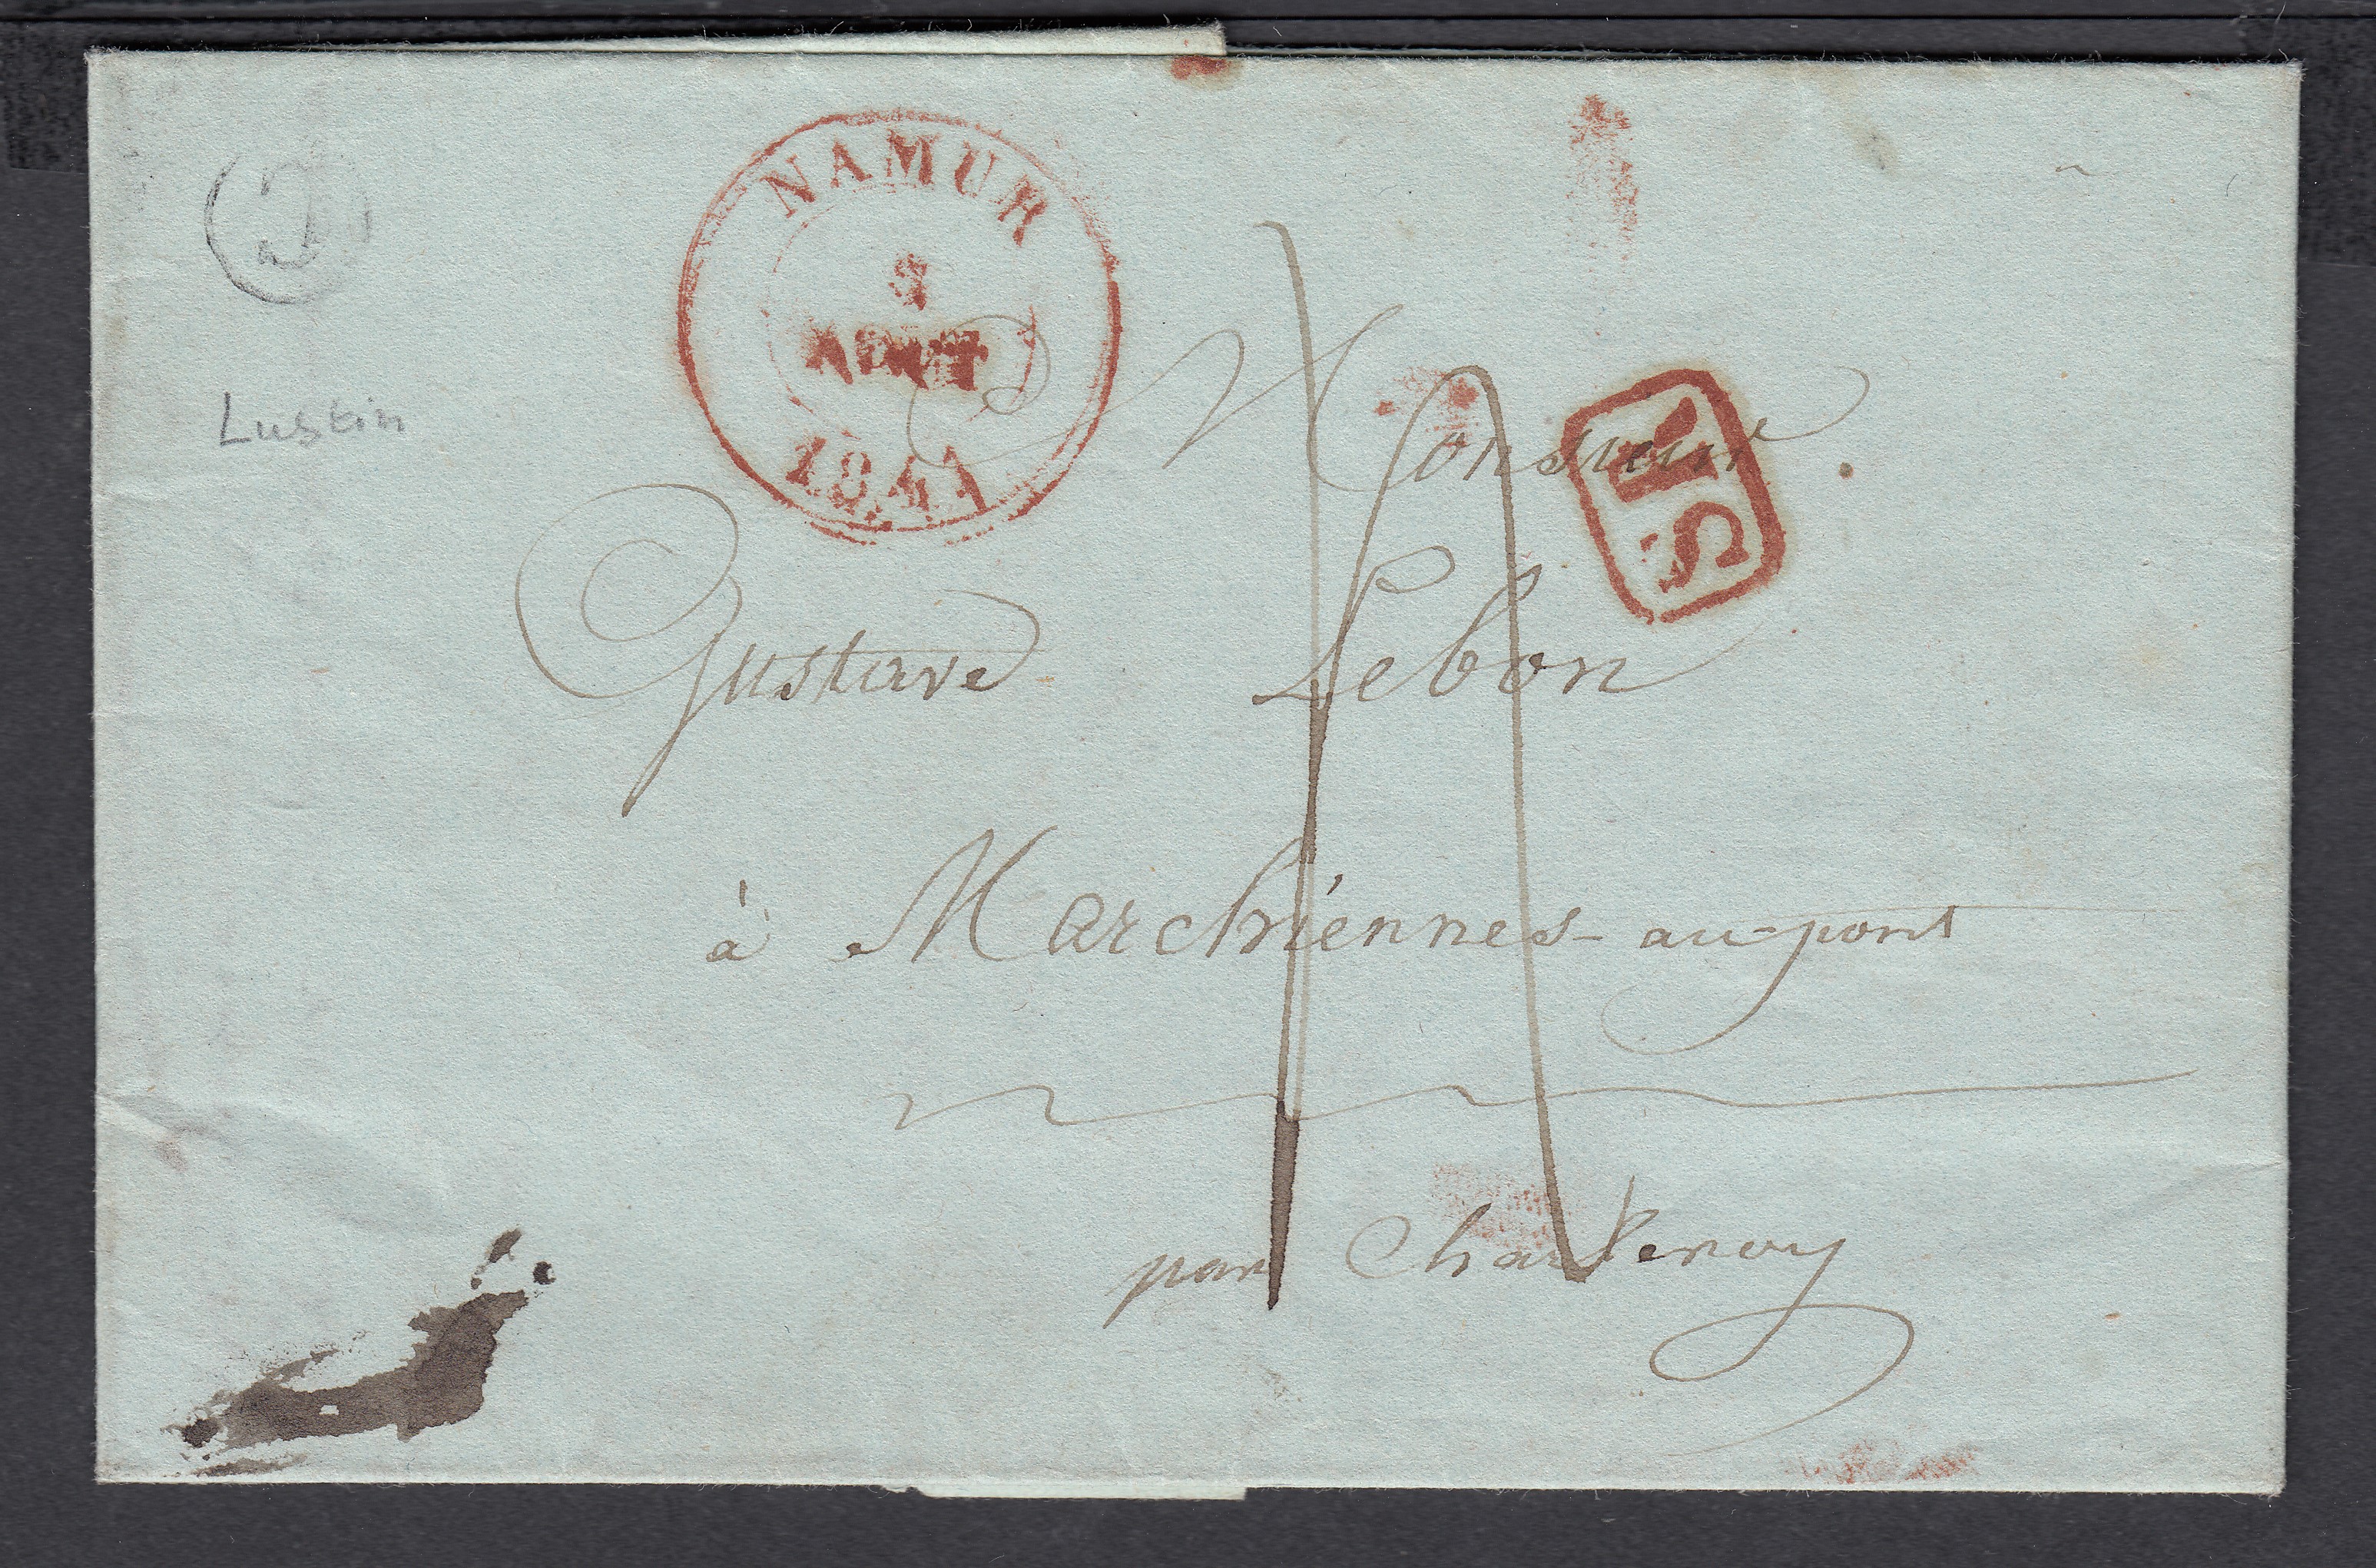 NAMUR
AOUT
1841
Lustin
Monsieur
SR
Gustave Lebon
à Marchiennes-au-pont
par Charleroy